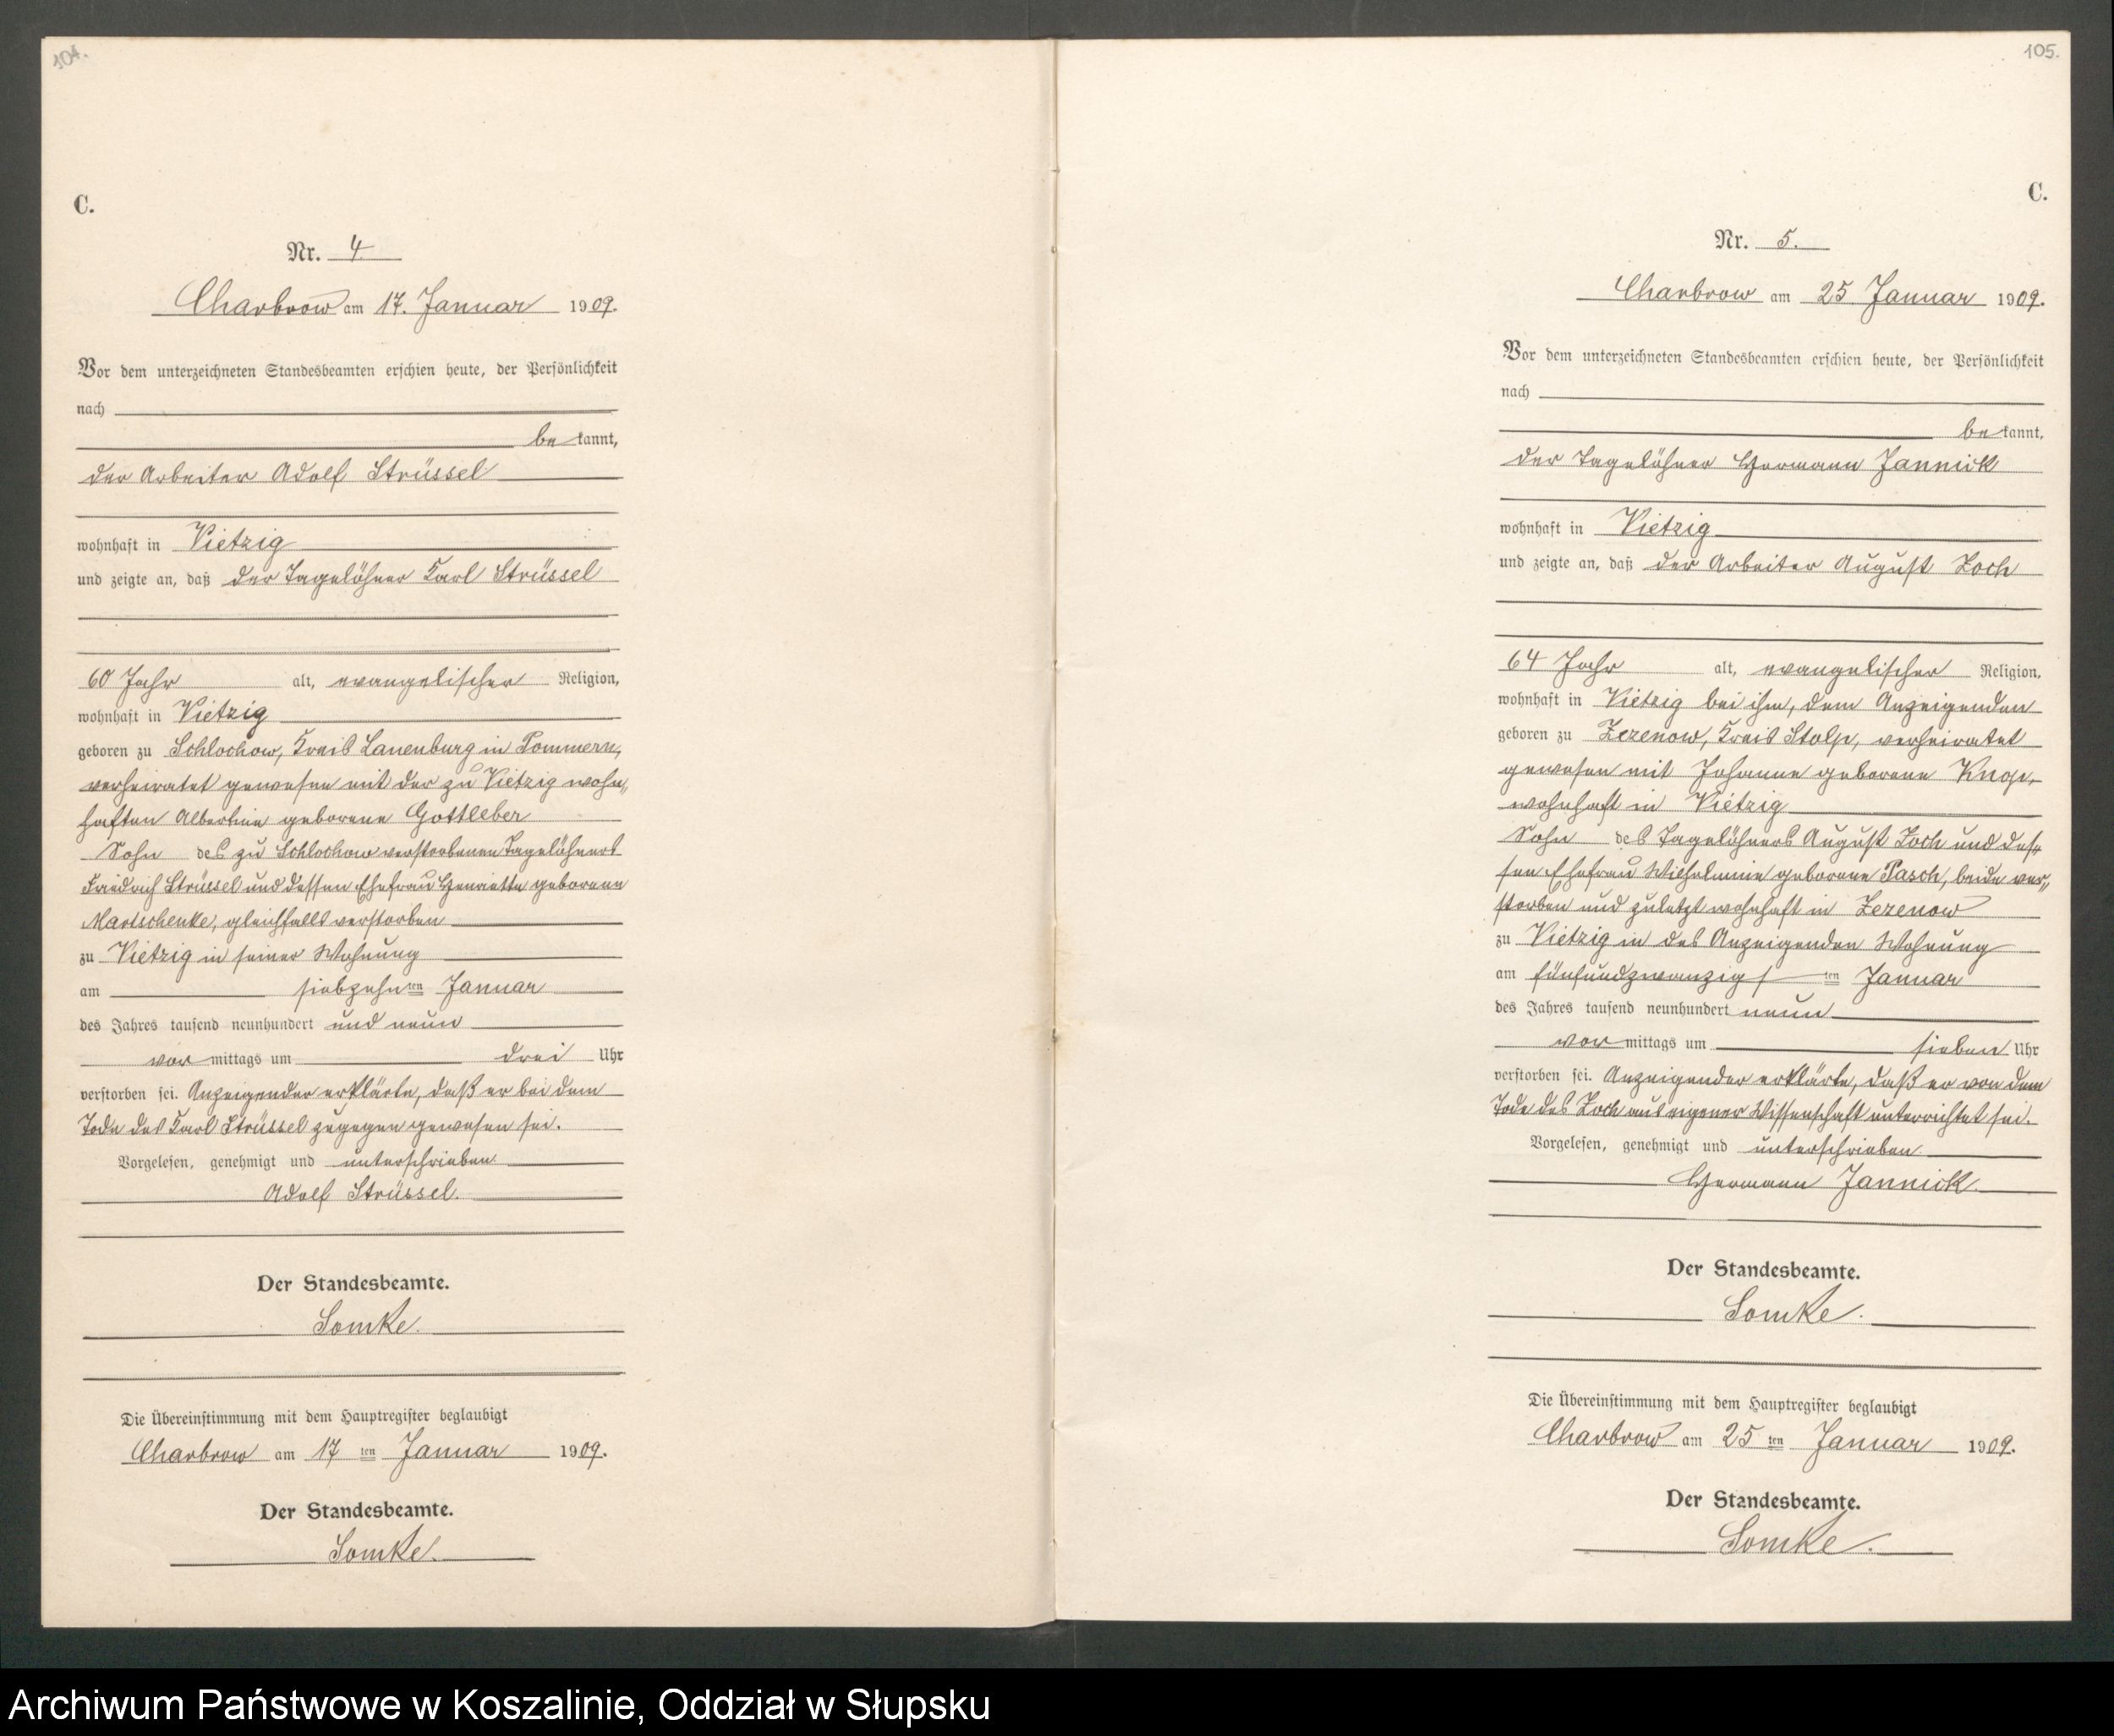 104.
C.
Nr. 4
Charbrow am 17. Januar 1909.
Vor dem unterzeichneten Standesbeamten erschien heute, der Persönlichkeit
nach
be kannt,
der Arbeiter Adolf Strüssel
wohnhaft in Vietzig
und zeigte an, daß der Tagelöhner Karl Strüssel
60 Jahr alt, evangelischer Religion,
wohnhaft in Vietzig
geboren zu Schlochow, Kreis Lauenburg in Pommern,
verheiratet gewesen mit der zu Vietzig wohn„
haften Albertine geborene Gottleber
Sohn des zu Schlochow verstorbenen Tagelöhners
Friedrich Strüssel und dessen Ehefrau Henriette geborene
Martschenke, gleichfalls verstorben
zu Vietzig in seiner Wohnung
am siebzehn ten Januar
des Jahres tausend neunhundert und neun
vor mittags um drei Uhr
verstorben sei. Anzeigender erklärte, daß er bei dem
Tode des Karl Strüssel zugegen gewesen sei.
Vorgelesen, genehmigt und unterschrieben
Adolf Strüssel.
Der Standesbeamte.
Somke.
Die Übereinstimmung mit dem Hauptregister beglaubigt
Charbrow am 17 ten Januar 1909.
Der Standesbeamte.
Somke.
105.
C.
Nr. 5.
Charbrow am 25 Januar 1909.
Vor dem unterzeichneten Standesbeamten erschien heute, der Persönlichkeit
nach
be kannt,
der Tagelöhner Hermann Jannick
wohnhaft in Vietzig
und zeigte an, daß der Arbeiter August Zoch
64 Jahr alt, evangelischer Religion,
wohnhaft in Vietzig bei ihm, dem Anzeigenden
geboren zu Zezenow, Kreis Stolp, verheiratet
gewesen mit Johanne geborene Knop,
wohnhaft in Vietzig
Sohn des Tagelöhners August Zoch und des„
sen Ehefrau Wilhelmine geborene Pasch, beide ver„
storben und zuletzt wohnhaft in Zezenow
zu Vietzig in des Anzeigenden Wohnung
am fünfundzwanzigs ten Januar
des Jahres tausend neunhundert neun
vor mittags um sieben Uhr
verstorben sei. Anzeigender erklärte, daß er von dem
Tode des Zoch aus eigener Wissenschaft unterrichtet sei.
Vorgelesen, genehmigt und unterschrieben
Hermann Jannick.
Der Standesbeamte.
Somke.
Die Übereinstimmung mit dem Hauptregister beglaubigt
Charbrow am 25 ten Januar 1909.
Der Standesbeamte.
Somke.
Archiwum Państwowe w Koszalinie, Oddział w Słupsku